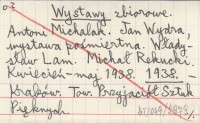 Wystawy zbiorowe.
Antoni Michalak. Jan Wydra,
wystawa pośmiertna. Włady-
sław Lam. Michał Rekucki.
Kwiecień-maj 1938. 1938. -
Kraków. Tow. Przyjaciół Sztuk
Pięknych.